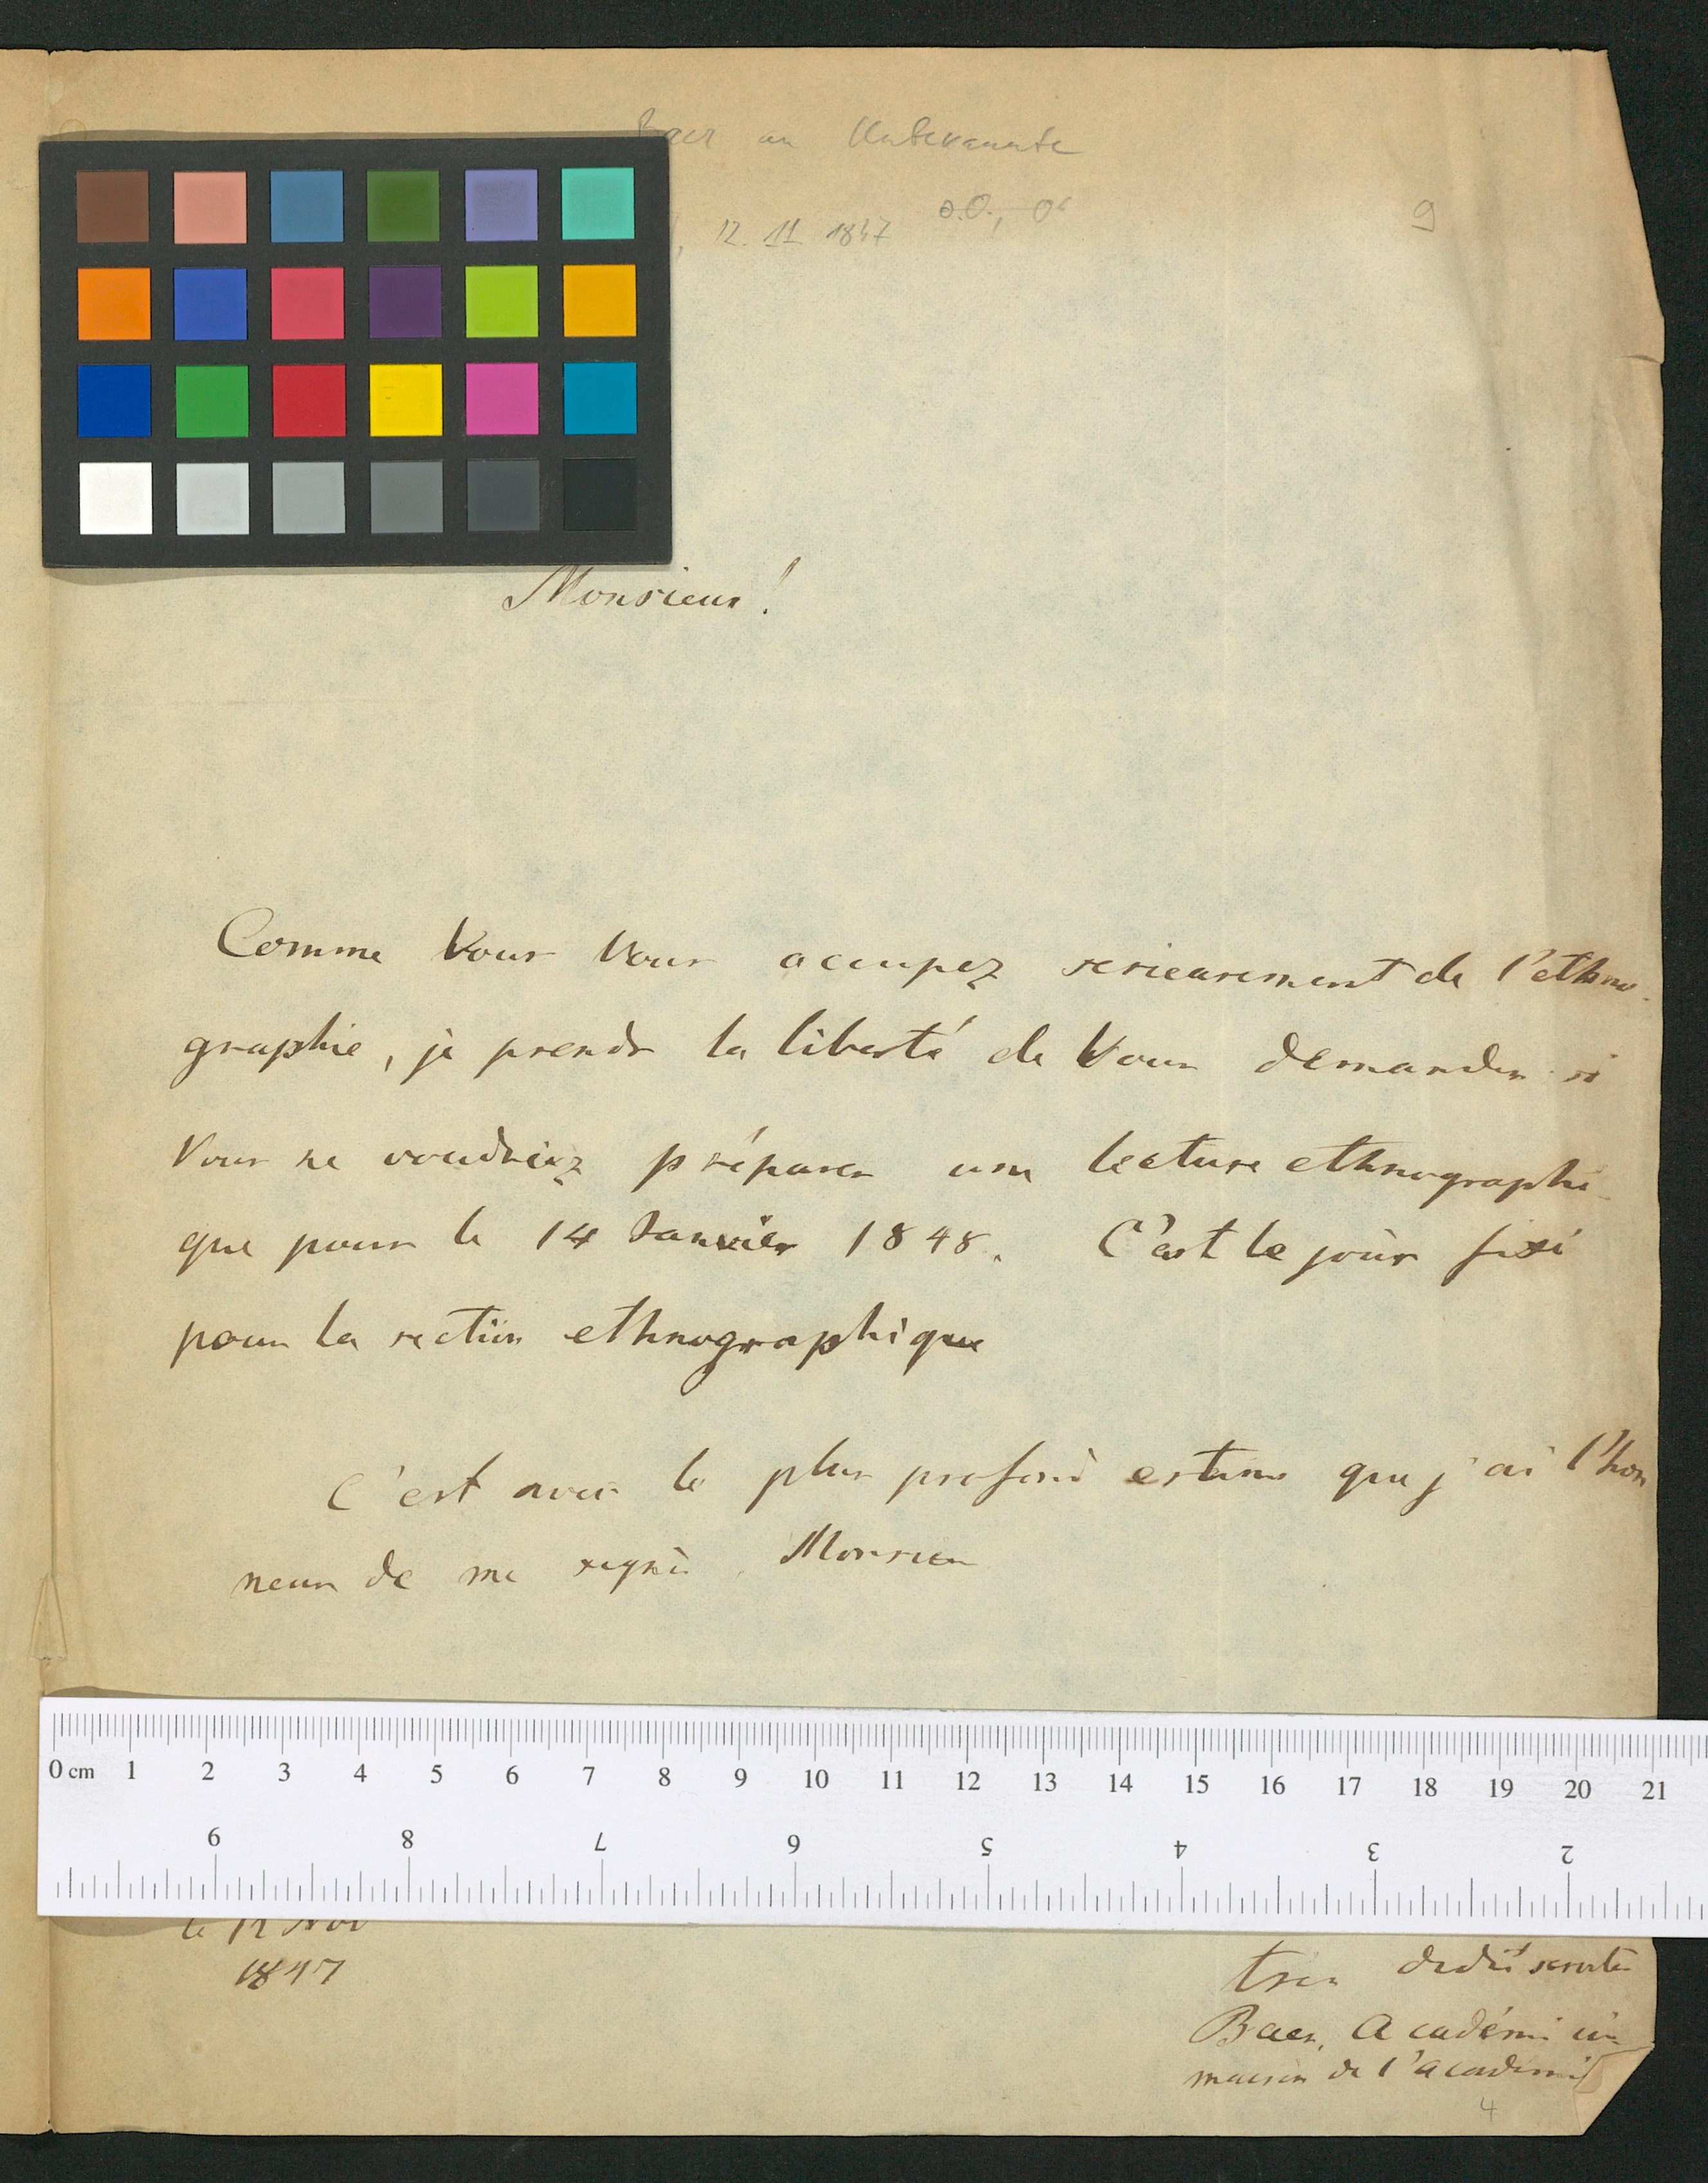 Baer an Unbekannte
12. 11 1847
o.O.,
9
Monsieur!
Comme Vous Vous occupez serieusement de l'ethno-
graphie, je prends la liberté de Vous demander si
Vous ne voudriez préparer une lecture ethnographi-
que pour le 14 Janvier 1848. C'est le jour fixé
pour la section ethnographique
C'est avec le plus profond estime que j'ai l'hon
neur de me signer Monsieur
0 cm 1 2 3 4 5 6 7 8 9 10 11 12 13 14 15 16 17 18 19 20 21
9 8 7 6 5 4 3 2
le 12 Nov
1847
tres dedié
Baer, Académicien
maison de l'academie
4